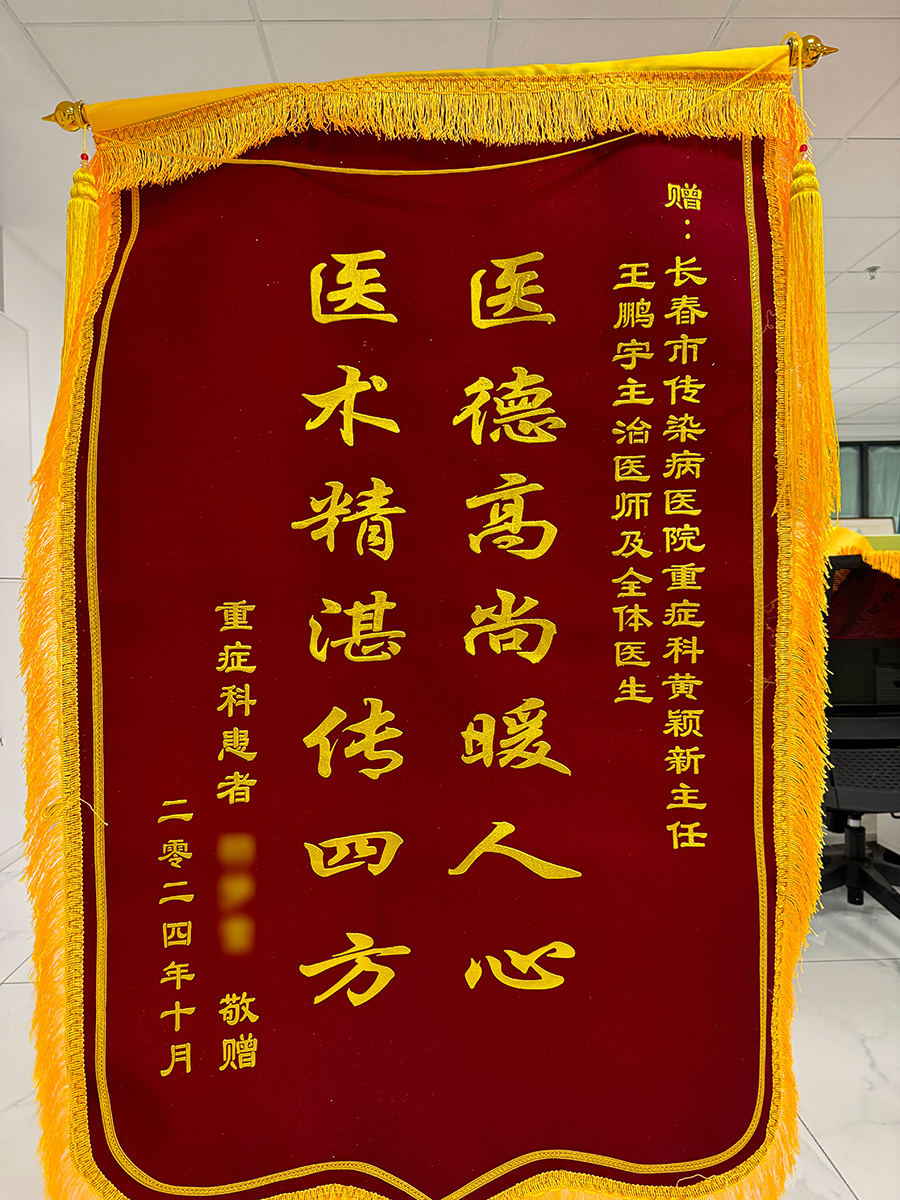 赠：长春市传染病医院重症科黄颖新主任
王鹏宇主治医师及全体医生
医德高尚暖人心
医术精湛传四方
重症科患者 敬赠
二零二四年十月